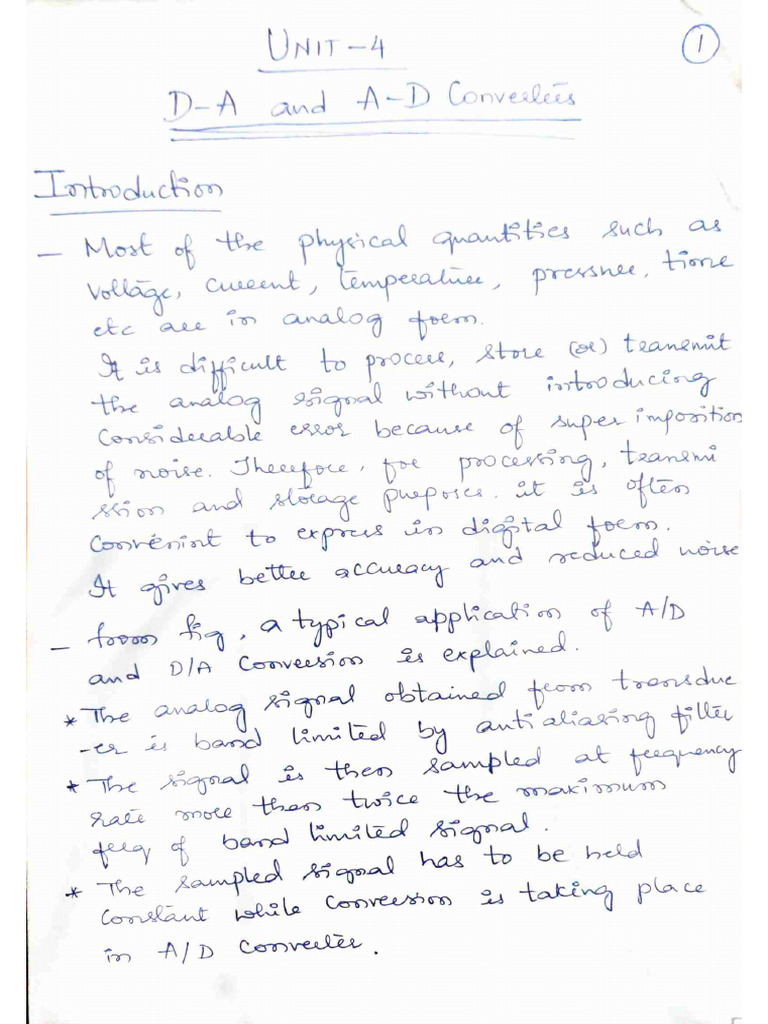 UNIT-4
1
D-A and A-D Converters
Introduction
- Most of the physical quantities such as
voltage, current, temperature, pressure, time
etc are in analog form.
It is difficult to process, store (or) transmit
the analog signal without introducing
considerable error because of super imposition
of noise. Therefore, for processing, transmi
ssion and storage purposes. it is often
convenint to express in digital form.
It gives better accuracy and reduced noise
- from fig, a typical application of A/D
and D/A conversion is explained.
* The analog signal obtained from transduc
-er is band limited by antialiasing filter
* The signal is then sampled at frequency
rate more then twice the maximum
freq of band limited signal.
* The sampled signal has to be held
constant while conversion is taking place
in A/D converter.